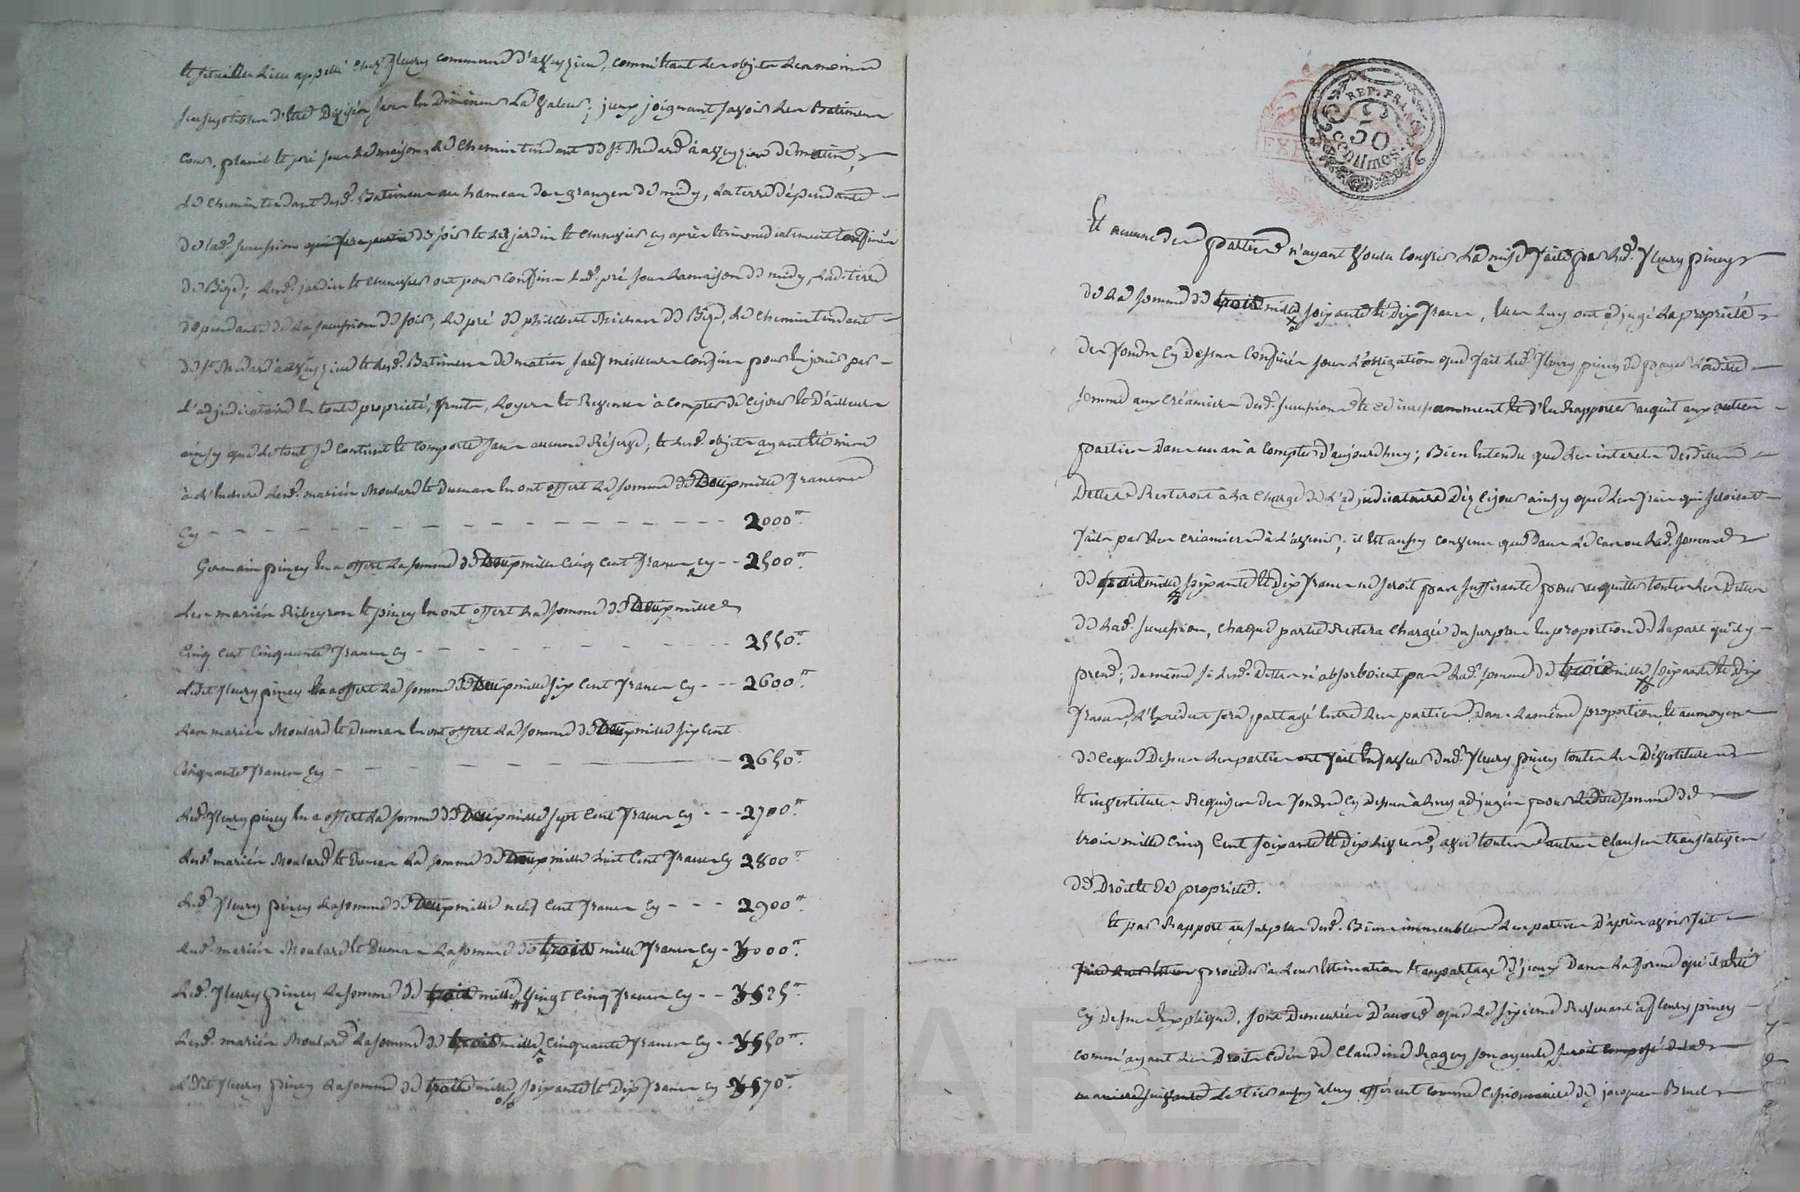 et situés au lieu appellé chez fleury commune d'aveyzieu, comm'étant des objets de moindre
Cour, plassil et pré sous la maison, le chemin tendant de St. Medard à aveyzieu de matin,
le chemin tendant desd. Batiments au hameau des granges de midy, la terre dépendante
de lad. succession de soir et le jardin et cheneviers cy après et immediatement confinés
de Bize; lesd. jardin et chenevier ont pour confins led. pré sous la maison de midy, lad. terre
dépendante de la succession de soir, le pré de philibert Thichan de Bize, le chemin tendant
de St. Medard à aveyzieu et lesd. Batiments de matin sauf meilleurs confins pour en jouir par
l'adjudicataire en toute proprieté, fruits, loyers et Revenus à compter de ce jour et d'ailleurs
ainsy que le tout se contient et comporte sans aucune Réserve; et lesd. objets ayant été mis
à l'enchere lesd. mariés Moulard et Dumas en ont offert la somme de Deux mille francs
cy - - - 2000tt
Germain piney en a offert la somme de Deux mille cinq cent francs cy - - 2500tt
Les mariés Ribeyron et piney en ont offert la somme de Deux mille
cinq cent cinquante francs cy - - - 2550tt
Ledit fleury piney en a offert la somme de Deux mille six cent francs cy - - 2600tt
Les mariés Moulard et Dumas en ont offert la somme de Deux mille six cent
cinquante francs cy - - - 2650tt
Led. fleury piney en a offert la somme de Deux mille sept cent francs cy - - - 2700tt
Lesd. mariés Moulard et Dumas la somme de Deux mille huit cent francs cy 2800tt
Led. fleury piney la somme de Deux mille neuf cent francs cy - - - 2900tt
Lesd. mariés Moulard et Dumas la somme de trois mille francs cy - 3000tt
Led. fleury piney la somme de trois mille vingt cinq francs cy - -
Lesd. mariés Moulard la somme de trois mille cinquante francs cy -
Ledit fleury piney la somme de trois mille soixante et dix francs cy
REP. FRA.
50
centimes.
Et aucune des parties n'ayant voulu couvrir la mise faite par led. fleury piney
de la somme de trois mille soixante et dix francs, elles luy ont adjugé la propriété
des fonds cy dessus confinés sous l'obligation que fait led. fleury piney de payer ladite
somme aux créanciers de lad. succession et d'en Rapporter acquit aux autres
parties dans un an à compter d'aujourd'huy; Bien entendu que les interets desdites
Dettes Resteront à la charge de l'adjudicataire dez ce jour ainsy que les frais qui seroient
faits par les créanciers à l'avenir; il est aussy convenu que dans le cas ou lad. somme
de trois mille soixante et dix francs ne seroit pas suffisante pour acquitter toutes les Dettes
de lad. succession, chaque partie Restera chargée du surplus en proportion de la part qu'il y
prend; de même si lesd. dettes n'absorboient pas lad. somme de trois mille soixante et dix
francs, l'excédent sera partagé entre les parties dans la même proportion, et au moyen
de ce que Dessus les parties ont fait en faveur dud. fleury piney toutes les Dévestitures
et investitures Requises des fonds cy dessus à luy adjugés pour ladite somme de
trois mille cinq cent soixante et dix livres, avec toutes autres clauses translatives
de Droit et de propriété.
Et par Rapport au surplus desd. Biens immeubles les parties d'après avoir fait
procéder à leur estimation et au partage d'iceux dans la forme qu'il a été
cy dessus expliqué, sont demeurées d'accord que le sixieme Revenant à fleury piney
comm'ayant les Droits cédés de Claudine Ragey son ayeule